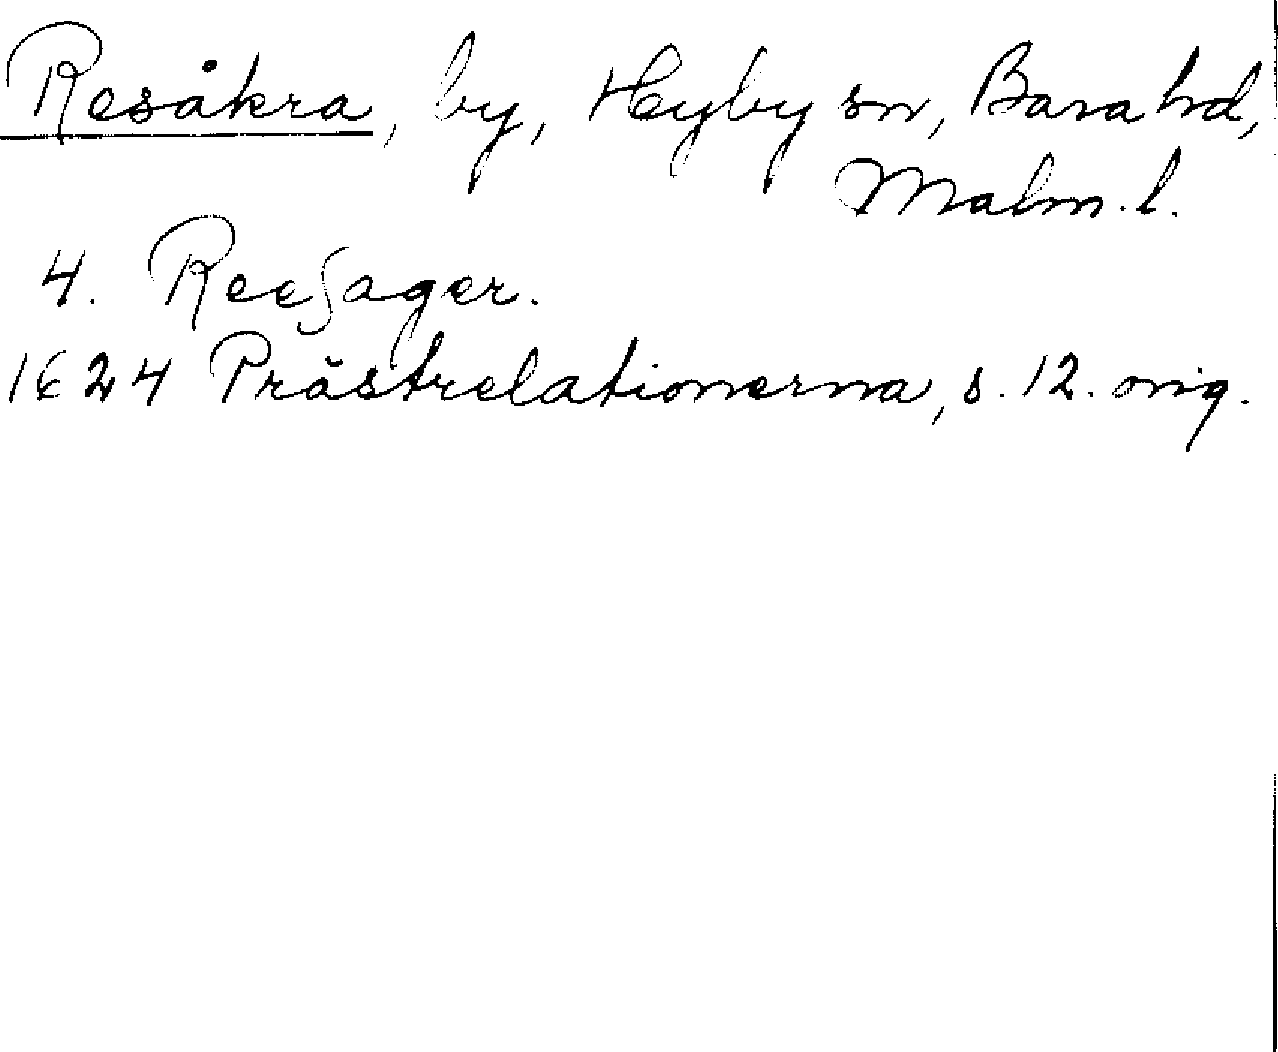 Resåkra, by, Hyby sn, Bara hd,
Malm. l.
4. Reeſager.
1624 Prästrelationerna, s. 12. orig.